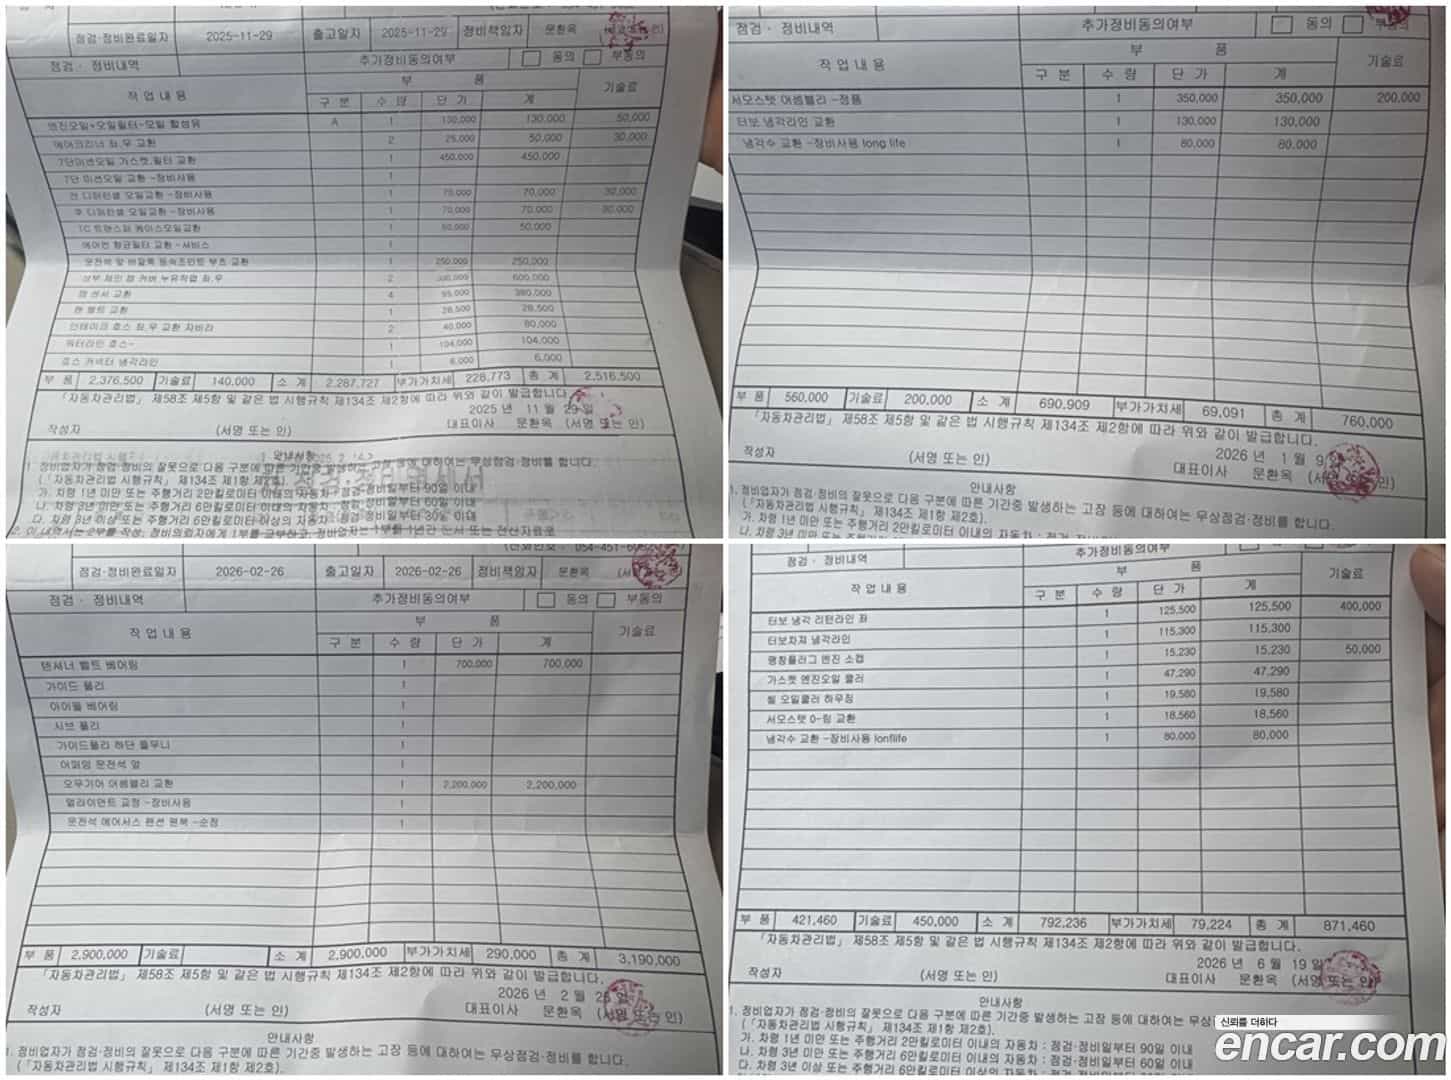 점검·정비완료일자 2025-11-29 출고일자 2025-11-29 정비책임자 문환옥
점검·정비내역 추가정비동의여부 동의 부동의
작업내용 부품 기술료
구분 수량 단가 계
엔진오일+오일필터-모일 합성유 A 1 130,000 130,000 50,000
에어크리너 좌,우 교환 2 25,000 50,000 30,000
7단미션오일 가스켓,필터 교환 1 450,000 450,000
7단 미션오일 교환 -장비사용 1
전 디퍼런셜 오일교환 -장비사용 1 70,000 70,000 30,000
후 디퍼런셜 오일교환 -장비사용 1 70,000 70,000 30,000
TC 트랜스퍼 케이스오일교환 1 50,000 50,000
에어컨 향균필터 교환 -서비스 1
운전석 앞 바깥쪽 등속조인트 부츠 교환 1 250,000 250,000
상부 체인 캠 커버 누유작업 좌,우 2 300,000 600,000
캠 센서 교환 4 95,000 380,000
팬 벨트 교환 1 28,500 28,500
인테이크 호스 좌,우 교환 자바라 2 40,000 80,000
워터라인 호스- 1 104,000 104,000
호스 커넥터 냉각라인 1 6,000 6,000
부품 2,376,500 기술료 140,000 소계 2,287,727 부가가치세 228,773 총계 2,516,500
「자동차관리법」 제58조 제5항 및 같은 법 시행규칙 제134조 제2항에 따라 위와 같이 발급합니다.
2025 년 11 월 29 일
작성자 (서명 또는 인) 대표이사 문환옥 (서명 또는 인)
안내사항
1. 정비업자가 점검·정비의 잘못으로 다음 구분에 따른 기간중 발생하는 고장 등에 대하여는 무상점검·정비를 합니다.
(「자동차관리법」 시행규칙 제134조 제1항 제2호).
가. 차령 1년 미만 또는 주행거리 2만킬로미터 이내의 자동차 : 점검·정비일부터 90일 이내
나. 차령 3년 미만 또는 주행거리 6만킬로미터 이내의 자동차 : 점검·정비일부터 60일 이내
다. 차령 3년 이상 또는 주행거리 6만킬로미터 이상의 자동차 : 점검·정비일부터 30일 이내
점검·정비내역 추가정비동의여부 동의 부동의
작업내용 부품 기술료
구분 수량 단가 계
서모스탯 어셈블리 -정품 1 350,000 350,000 200,000
터보 냉각라인 교환 1 130,000 130,000
냉각수 교환 -장비사용 long life 1 80,000 80,000
부품 560,000 기술료 200,000 소계 690,909 부가가치세 69,091 총계 760,000
「자동차관리법」 제58조 제5항 및 같은 법 시행규칙 제134조 제2항에 따라 위와 같이 발급합니다.
2026 년 1 월 9
작성자 (서명 또는 인) 대표이사 문환옥
안내사항
1. 정비업자가 점검·정비의 잘못으로 다음 구분에 따른 기간중 발생하는 고장 등에 대하여는 무상점검·정비를 합니다.
(「자동차관리법」 시행규칙 제134조 제1항 제2호).
가. 차령 1년 미만 또는 주행거리 2만킬로미터 이내의 자동차
점검·정비완료일자 2026-02-26 출고일자 2026-02-26 정비책임자 문환옥
점검·정비내역 추가정비동의여부 동의 부동의
작업내용 부품 기술료
구분 수량 단가 계
텐셔너 벨트 베어링 1 700,000 700,000
가이드 풀리 1
아이들 베어링 1
시브 풀리 1
가이드풀리 하단 좌우니 1
어퍼암 운전석 앞 1
오무기어 어셈블리 교환 1 2,200,000 2,200,000
얼라이먼트 교정 -장비사용 1
운전석 에어서스 펜션 왼쪽 -순정 1
부품 2,900,000 기술료 소계 2,900,000 부가가치세 290,000 총계 3,190,000
「자동차관리법」 제58조 제5항 및 같은 법 시행규칙 제134조 제2항에 따라 위와 같이 발급합니다.
2026 년 2 월 26 일
작성자 (서명 또는 인) 대표이사 문환옥 (서명 또는 인)
안내사항
1. 정비업자가 점검·정비의 잘못으로 다음 구분에 따른 기간중 발생하는 고장 등에 대하여는 무상점검·정비를 합니다.
(「자동차관리법」 시행규칙 제134조 제1항 제2호).
점검·정비내역 추가정비동의여부
작업내용 부품 기술료
구분 수량 단가 계
터보 냉각 리턴라인 좌 1 125,500 125,500 400,000
터보차져 냉각라인 1 115,300 115,300
팽창플러그 엔진 소캡 1 15,230 15,230 50,000
가스켓 엔진오일 쿨러 1 47,290 47,290
씰 오일쿨러 하우징 1 19,580 19,580
서모스탯 O-링 교환 1 18,560 18,560
냉각수 교환 -장비사용 lonflife 1 80,000 80,000
부품 421,460 기술료 450,000 소계 792,236 부가가치세 79,224 총계 871,460
「자동차관리법」 제58조 제5항 및 같은 법 시행규칙 제134조 제2항에 따라 위와 같이 발급합니다.
2026 년 6 월 19 일
작성자 (서명 또는 인) 대표이사 문환옥 (서명 또는 인)
안내사항
1. 정비업자가 점검·정비의 잘못으로 다음 구분에 따른 기간중 발생하는 고장 등에 대하여는 무상
(「자동차관리법」 시행규칙 제134조 제1항 제2호).
가. 차령 1년 미만 또는 주행거리 2만킬로미터 이내의 자동차 : 점검·정비일부터 90일 이내
나. 차령 3년 미만 또는 주행거리 6만킬로미터 이내의 자동차 : 점검·정비일부터 60일 이내
신뢰를 더하다
encar.com